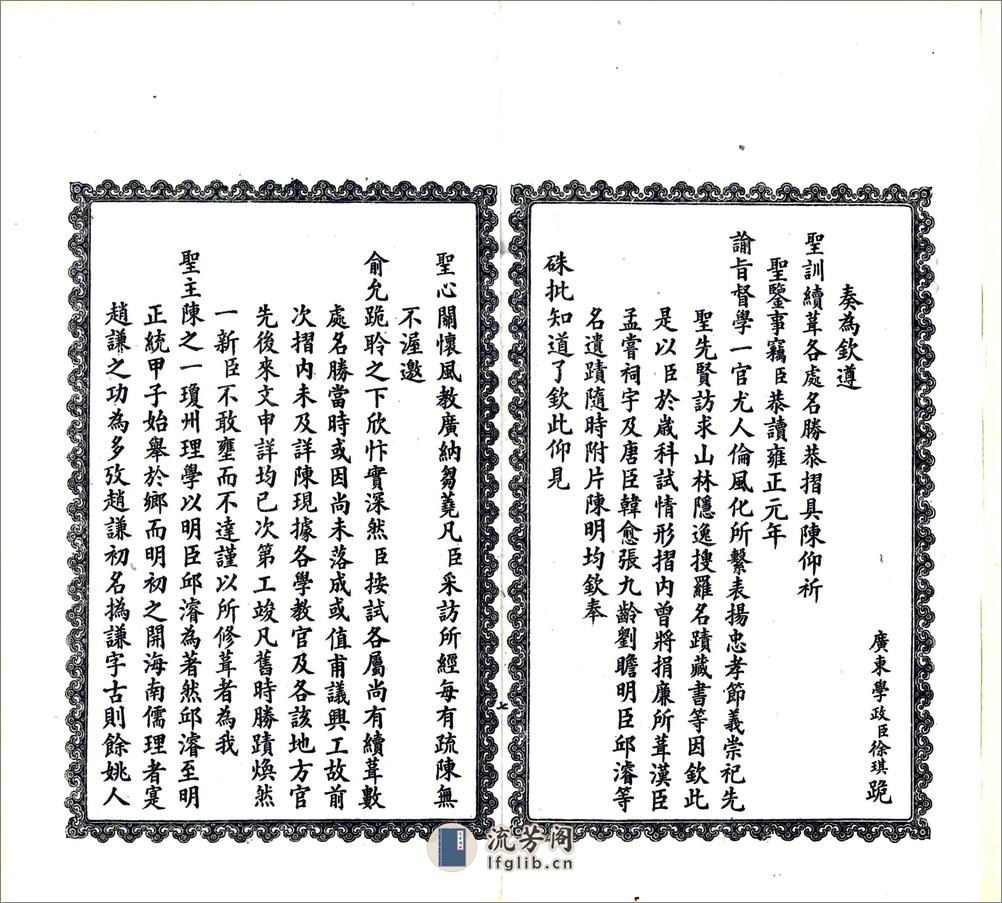 廣東學政臣徐琪跪
奏為欽遵
聖訓續葺各處名勝恭摺具陳仰祈
聖鑒事竊臣恭讀雍正元年
諭旨督學一官尤人倫風化所繫表揚忠孝節義崇祀先
聖先賢訪求山林隱逸搜羅名蹟藏書等因欽此
是以臣於歲科試情形摺內曾將捐廉所葺漢臣
孟嘗祠宇及唐臣韓愈張九齡劉瞻明臣邱濬等
名遺蹟隨時附片陳明均欽奉
硃批知道了欽此仰見
聖心關懷風教廣納芻蕘凡臣采訪所經每有疏陳無
不渥邀
俞允跪聆之下欣忭實深然臣按試各屬尚有續葺數
處名勝當時或因尚未落成或值甫議興工故前
次摺內未及詳陳現據各學教官及各該地方官
先後來文申詳均已次第工竣凡舊時勝蹟煥然
一新臣不敢壅而不達謹以所修葺者為我
聖主陳之一瓊州理學以明臣邱濬為著然邱濬至明
正統甲子始舉於鄉而明初之開海南儒理者寔
趙謙之功為多攷趙謙初名撝謙字古則餘姚人
七
流芳阁
lfglib.cn